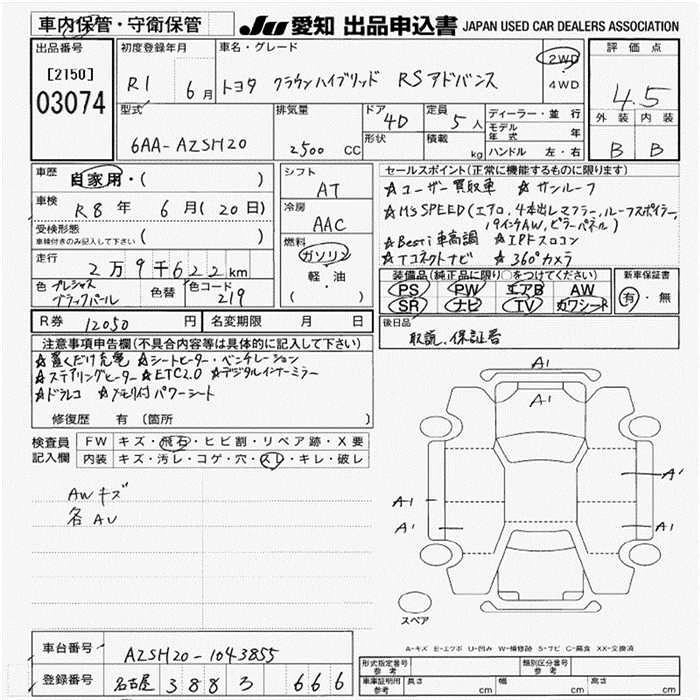 車内保管・守衛保管
JU 愛知 出品申込書 JAPAN USED CAR DEALERS ASSOCIATION
出品番号
[2150]
03074
初度登録年月
R1 6月
車名・グレード
トヨタ クラウンハイブリッド RSアドバンス
2WD
4WD
評価点
4.5
外装 内装
B B
型式
6AA-AZSH20
排気量
2500 CC
ドア
4D
形状
定員
5人
積載
kg
ディーラー・並行
モデル年式 年
ハンドル 左・右
車歴
自家用・( )
車検
R8年 6月(20日)
受検形態
車検付きのみ記入して下さい ( )
走行
2万9千622km
色 プレシャスブラックパール
色替
色コード
219
シフト
AT
冷房
AAC
燃料
ガソリン
軽・油
( )
セールスポイント(正常に機能するものに限ります)
☆ユーザー買取車 ☆サンルーフ
☆M'S SPEED(エアロ,4本出しマフラー,ルーフスポイラー,
19インチAW,ピラーパネル)
☆Besti車高調 ☆IPFフロコン
☆Tコネクトナビ ☆360°カメラ
装備品(純正品に限り○をつけてください)
PS PW エアB AW
SR ナビ TV カワシート
新車保証書
有・無
R券 12050 円
名変期限 月 日
後日品
取説,保証書
注意事項申告欄(不具合内容等は具体的に記入して下さい)
☆置くだけ充電 ☆シートヒーター・ベンチレーション
☆ステアリングヒーター ☆ETC2.0 ☆デジタルインナーミラー
☆ドラレコ ☆メモリ付パワーシート
修復歴 有(箇所 )
検査員記入欄
FW キズ・飛石・ヒビ割・リペア跡・X要
内装 キズ・汚レ・コゲ・穴・スレ・キレ・破レ
AWキズ
各AU
A1
A1
A1
A'
A'
A1
スペア
A-キズ E-エクボ U-凹み W-補修跡 S-サビ C-腐食 XX-交換済
車台番号 AZSH20-1043855
登録番号 名古屋 388 ろ 666
形式指定番号
参考
類別区分番号
参考
車庫証明用
参考
長さ cm 幅 cm 高さ cm